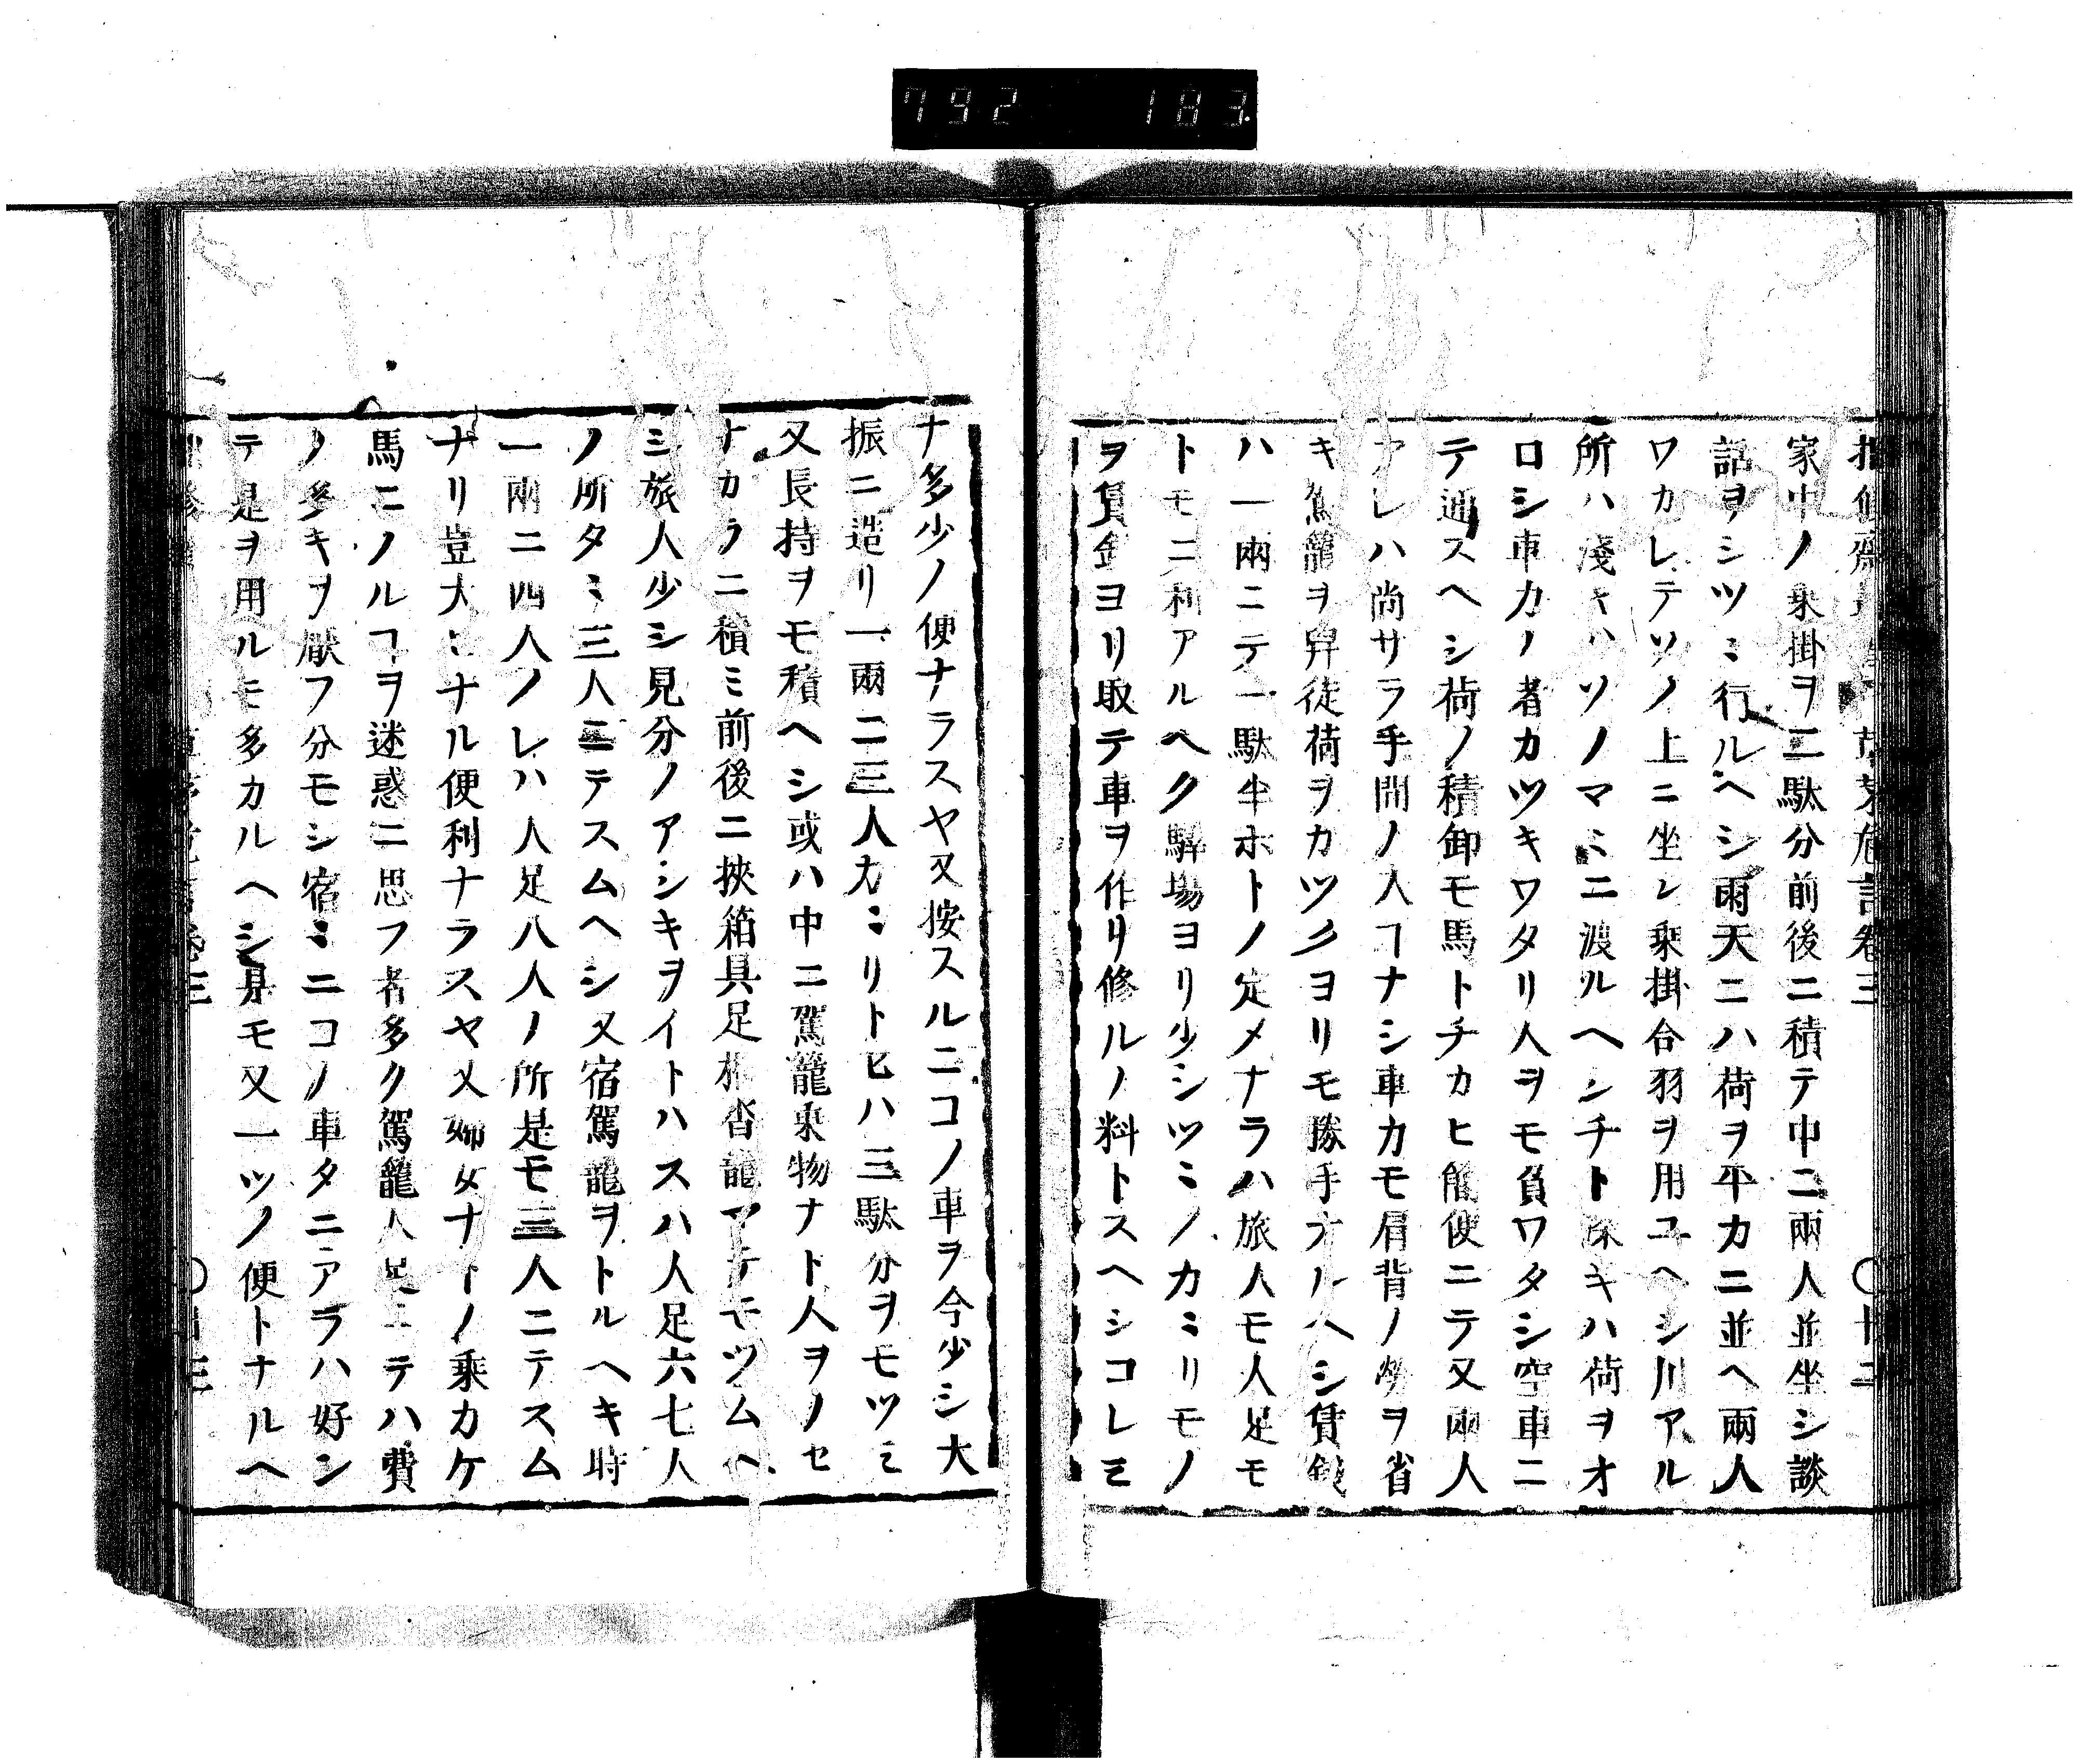 792 183
家中ノ乗掛ヲ二駄分前後ニ積テ中ニ兩人並坐シ談
話ヲシツヽ行ルヘシ雨天ニハ荷ヲ平カニ並ヘ兩人
ワカレテソノ上ニ坐シ乗掛合羽ヲ用ユヘシ川アル
所ハ淺キハソノマヽニ渡ルヘシチト深キハ荷ヲオ
ロシ車カノ者カツキワタリ人ヲモ負ワタシ空車ニ
テ通スヘシ荷ノ積卸モ馬トチカヒ簡便ニテ又兩人
アレハ尚サラ手間ノ入ヿナシ車カモ肩背ノ勞ヲ省
キ駕籠ヲ舁徒荷ヲカツクヨリモ勝手ナルヘシ賃錢
ハ一兩ニテ一駄半ホトノ定メナラハ旅人モ人足モ
トモニ利アルヘク驛場ヨリ少シツヽノカミリモノ
ヲ賃金ヨリ取テ車ヲ作リ修ルノ料トスヘシコレミ
ナ多少ノ便ナラスヤ又按スルニコノ車ヲ今少シ大
振ニ造リ一兩ニ三人カヽリトセハ三駄分ヲモツミ
又長持ヲモ積ヘシ或ハ中ニ駕籠乗物ナト人ヲノセ
ナカラニ積ミ前後ニ挾箱具足櫃沓籠マテモツムヘ
シ旅人少シ見分ノアシキヲイトハスハ人足六七人
ノ所タヽ三人ニテスムヘシ又宿駕籠ヲトルヘキ時
一兩ニ四人ノレハ人足八人ノ所是モ三人ニテスム
ナリ豈大ヽナル便利ナラスヤ又婦女ナトノ乗カケ
馬ニノルヿヲ迷惑ニ思フ者多ク駕籠人足ニテハ費
ノ多キヲ厭フ分モシ宿ヽニコノ車タニアラハ好シ
テ是ヲ用ルモ多カルヘシ是モ又一ツノ便トナルヘ